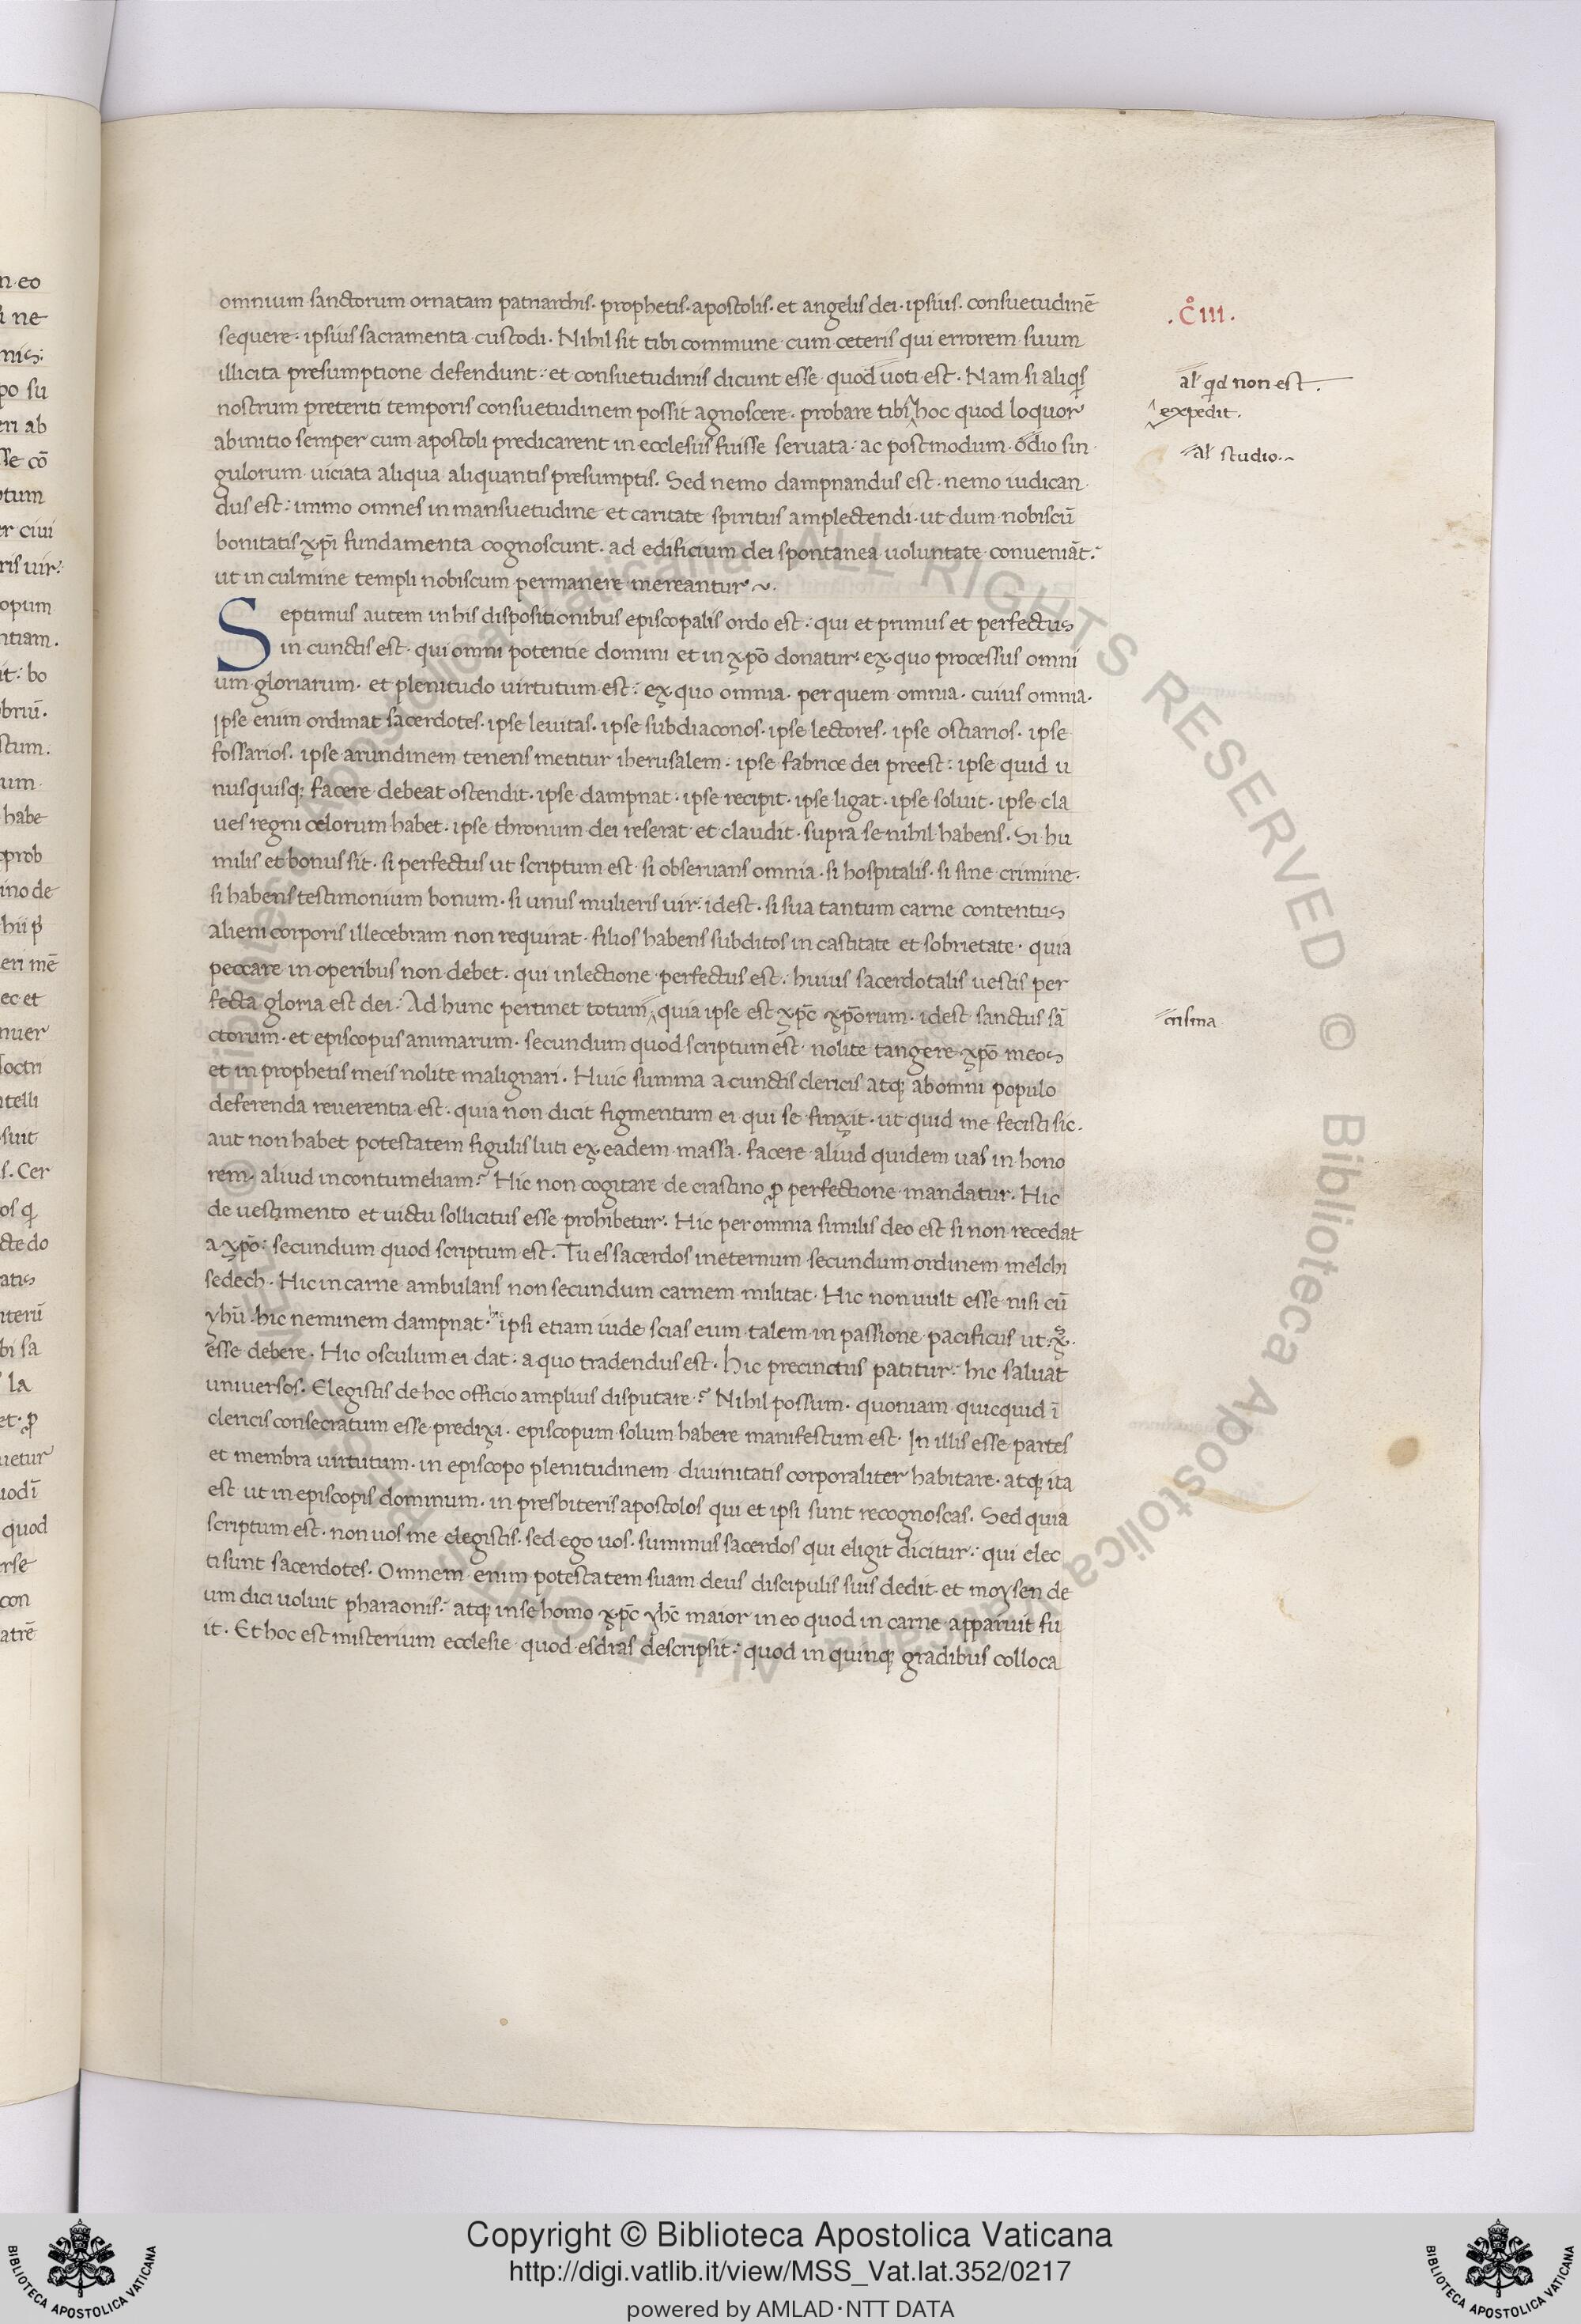 omnium sanctorum ornatam patriarchis· prophetis· apostolis· et angelis dei· ipsius· consuetudinē
sequere· ipsius sacramenta custodi· Nihil sit tibi commune cum ceteris qui errorem suum
illicita presumptione defendunt: et consuetudinis dicunt esse quod uoti est· Nam si aliqs
nostrum preteriti temporis consuetudinem possit agnoscere· probare tibi hoc quod loquor
abinitio semper cum apostoli predicarent in ecclesiis fuisse seruata: ac postmodum odio sin
gulorum uiciata aliqua aliquantis presumptis· Sed nemo dampnandus est· nemo iudican
dus est: immo omnes in mansuetudine et caritate spiritus amplectendi· ut dum nobiscū
bonitatis xp̄i fundamenta cognoscunt· ad edificium dei spontanea uoluntate conueniāt:
ut in culmine templi nobiscum permanere mereantur~·
Septimus autem in his dispositionibus episcopalis ordo est: qui et primus et perfectus
in cunctis est· qui omni potentie domini et in xp̄o donatur: ex quo processus omni
um gloriarum· et plenitudo uirtutum est: ex quo omnia· per quem omnia· cuius omnia·
Ipse enim ordinat sacerdotes· ipse leuitas· ipse subdiaconos· ipse lectores· ipse ostiarios· ipse
fossarios· ipse arundinem tenens metitur iherusalem: ipse fabrice dei preest: ipse quid u
nusquisq; facere debeat ostendit· ipse dampnat· ipse recipit· ipse ligat· ipse soluit· ipse cla
ues regni celorum habet· ipse thronum dei reserat et claudit· supra se nihil habens· Si hu
milis et bonus sit· si perfectus ut scriptum est· si obseruans omnia· si hospitalis· si sine crimine·
si habens testimonium bonum· si unus mulieris uir: idest· si sua tantum carne contentus
alieni corporis illecebram non requirat· filios habens subditos in castitate et sobrietate· quia
peccare in operibus non debet· qui inlectione perfectus est: huius sacerdotalis uestis per
fecta gloria est dei: Ad hunc pertinet totum quia ipse est xp̄c xp̄orum· idest sanctus sā
ctorum· et episcopus animarum· secundum quod scriptum est· nolite tangere xp̄o meos
et in prophetis meis nolite malignari· Huic summa a cunctis clericis atq; abomni populo
deferenda reuerentia est· quia non dicit figmentum ei qui se finxit· ut quid me fecisti sic·
aut non habet potestatem figulis luti ex eadem massa· facere aliud quidem uas in hono
rem· aliud incontumeliam? Hic non cogitare de crastino ꝓ perfectione mandatur· Hic
de uestimento et uictu sollicitus esse prohibetur· Hic per omnia similis deo est si non recedat
a xp̄o: secundum quod scriptum est· Tu es sacerdos ineternum secundum ordinem melchi
sedech· Hic in carne ambulans non secundum carnem militat· Hic non uult esse nisi cū
yhū· hic neminem dampnat· hic ipsi etiam iude scias eum talem in passione pacificus ut
esse debere· Hic osculum ei dat: a quo tradendus est· hic precinctus patitur: hic saluat
uniuersos· Elegistis de hoc officio amplius disputare? Nihil possum· quoniam quicquid ī
clericis consecratum esse predixi· episcopum solum habere manifestum est· In illis esse partes
et membra uirtutum· in episcopo plenitudinem diuinitatis corporaliter habitare· atq; ita
est ut in episcopis dominum· in presbiteris apostolos qui et ipsi sunt recognoscas· Sed quia
scriptum est· non uos me elegistis· sed ego uos· summus sacerdos qui eligit dicitur: qui elec
ti sunt sacerdotes· Omnem enim potestatem suam deus discipulis suis dedit et moysen de
um dici uoluit pharaonis: atq; in se homo xp̄c yhc̄ maior in eo quod in carne apparuit fu
it· Et hoc est misterium ecclesie quod esdras descripsit: quod in quinq; gradibus colloca
·C̊ III·
al' qd non est·
expedit·
al' studio·~
crisma
Copyright © Biblioteca Apostolica Vaticana
http://digi.vatlib.it/view/MSS_Vat.lat.352/0217
powered by AMLAD·NTT DATA
BIBLIOTECA APOSTOLICA VATICANA
BIBLIOTECA APOSTOLICA VATICANA